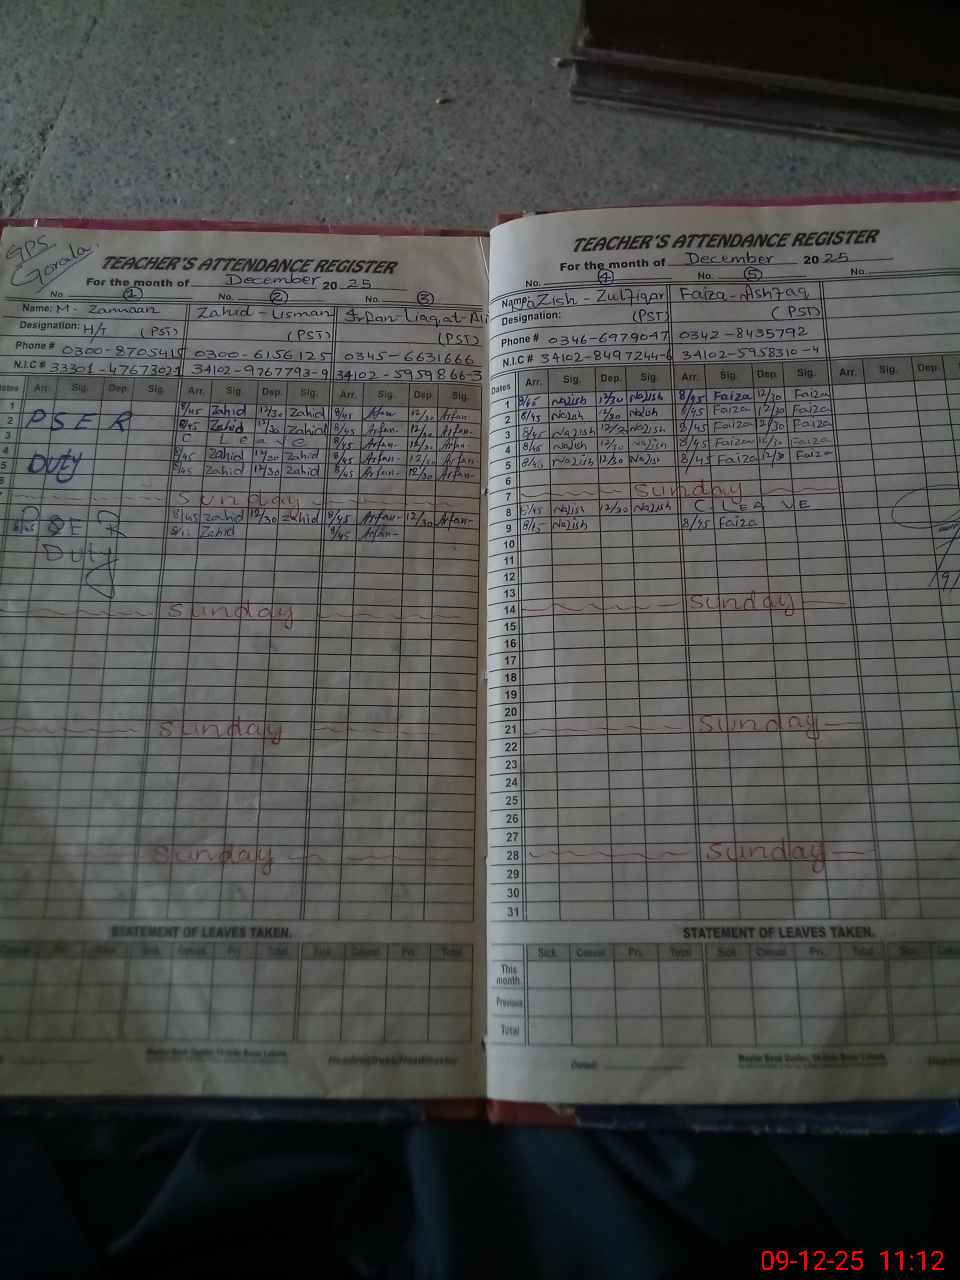 GPS
Gorala.
TEACHER'S ATTENDANCE REGISTER
For the month of December 2025
No. 1 No. 2 No. 3
Name: M- Zannaan Zahid-Usman Irfan-Liaqat-Ali
Designation: H/T (PST) (PST) (PST)
Phone # 0300-870541 0300-6156125 0345-6631666
N.I.C # 33301-4767302 34102-9767793-9 34102-5959866-3
Dates Arr. Sig. Dep. Sig. Arr. Sig. Dep. Sig. Arr. Sig. Dep. Sig.
1 8/45 Zahid 12/30 Zahid 8/45 Arfan 12/30 Arfan-
2 PSER 8/45 Zahid 12/30 Zahid 8/45 Arfan- 12/30 Arfan-
3 C Leave 8/45 Arfan- 12/30 Arfan-
4 Duty 8/45 Zahid 12/30 Zahid 8/45 Arfan- 12/30 Arfan-
5 8/45 Zahid 12/30 Zahid 8/45 Arfan- 12/30 Arfan-
6
Sunday
8/45 Zahid 12/30 Zahid 8/45 Arfan- 12/30 Arfan-
8/45 SER Zahid 8/45 Arfan-
Duty
Sunday
Sunday
Sunday
STATEMENT OF LEAVES TAKEN.
Casual Pri. Total Sick Casual Pri. Total Sick Casual Pri. Total
Headmistress/Headmaster
TEACHER'S ATTENDANCE REGISTER
For the month of December 2025
No. 4 No. 5 No.
Name: Nazish-Zulfiqar Faiza-Ashfaq
Designation: (PST) (PST)
Phone # 0346-6979047 0342-8435792
N.I.C # 34102-8497244-6 34102-5958310-4
Dates Arr. Sig. Dep. Sig. Arr. Sig. Dep. Sig. Arr. Sig. Dep.
1 8/45 Nazish 12/30 Nazish 8/45 Faiza 12/30 Faiza
2 8/45 Nazish 12/30 Nazish 8/45 Faiza 12/30 Faiza
3 8/45 Nazish 12/30 Nazish 8/45 Faiza 12/30 Faiza
4 8/45 Nazish 12/30 Nazish 8/45 Faiza 12/30 Faiza
5 8/45 Nazish 12/30 Nazish 8/45 Faiza 12/30 Faiza
6
7 Sunday
8 8/45 Nazish 12/30 Nazish C LEAVE
9 8/45 Nazish 8/45 Faiza
10
11
12
13
14 Sunday
15
16
17
18
19
20
21 Sunday
22
23
24
25
26
27
28 Sunday
29
30
31
STATEMENT OF LEAVES TAKEN.
Sick. Casual Pri. Total Sick Casual Pri. Total Sick
This month
Previous
Total
Dated:
09-12-25 11:12